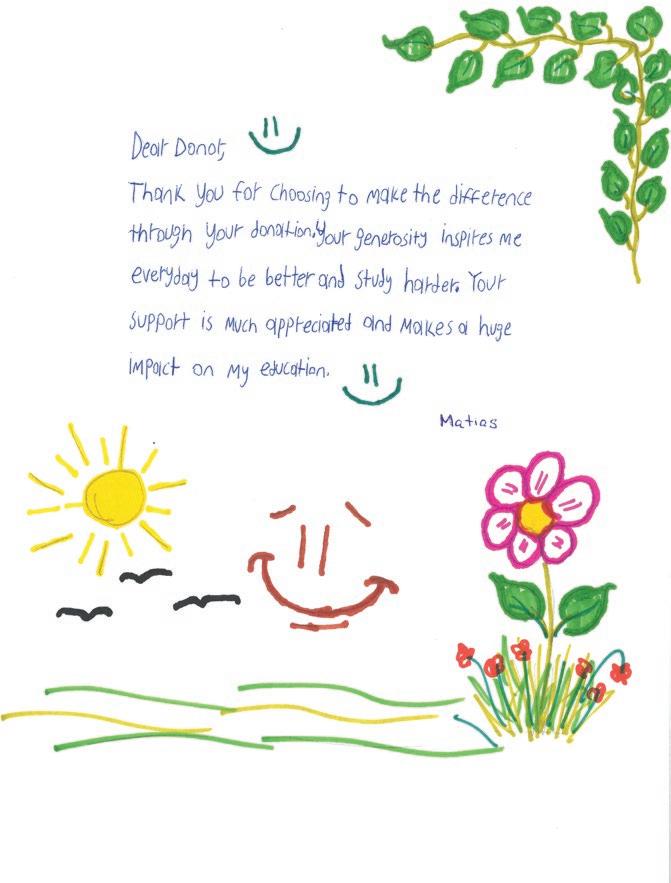 Dear Donor,
Thank you for choosing to make the difference
through your donation. Your generosity inspires me
everyday to be better and study harder. Your
support is much appreciated and makes a huge
impact on my education.
Matias